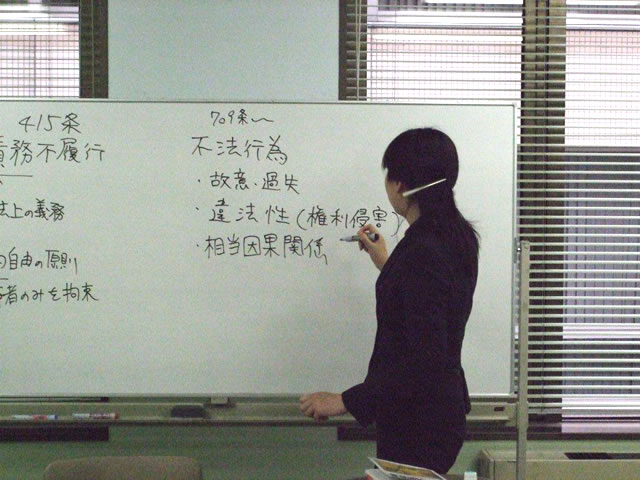 415条
債務不履行
法上の義務
自由の原則
者のみを拘束
709条〜
不法行為
・故意・過失
・違法性(権利侵害)
・相当因果関係